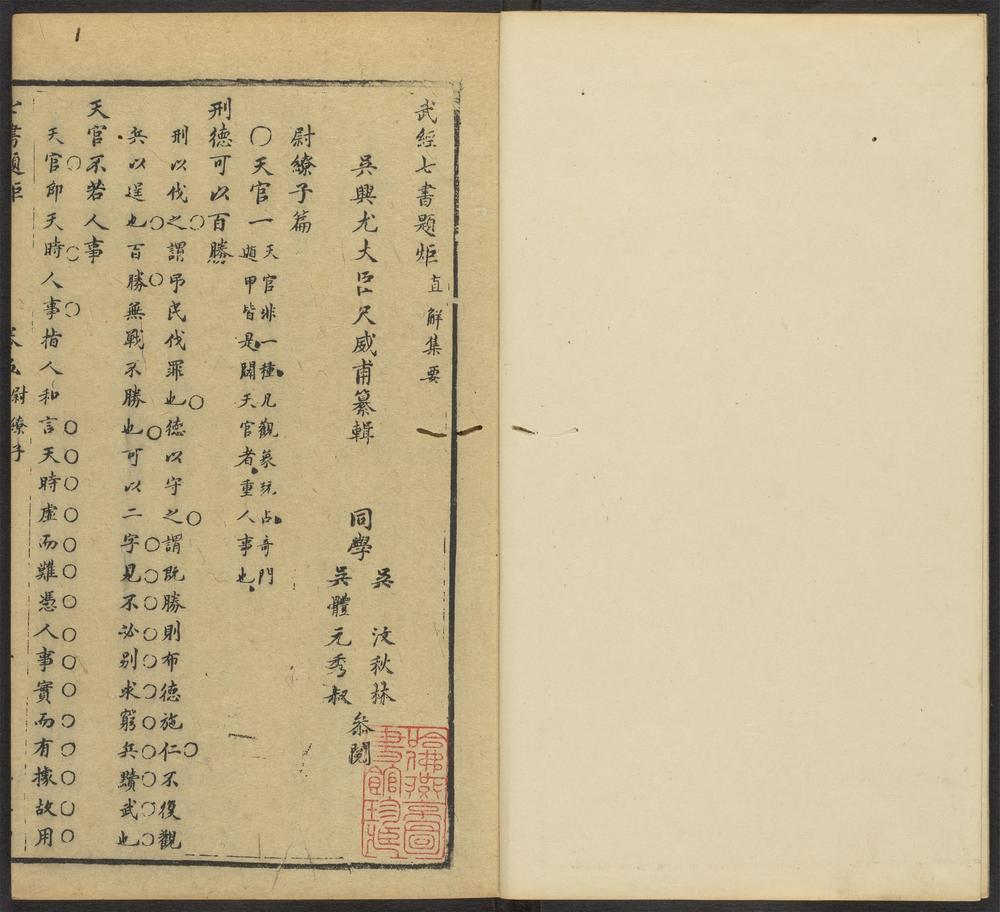 武經七書題炬直解集要
吳興尤大臣尺威甫纂輯
同學
吳 汶秋林
吳體元秀叔
叅閱
尉繚子篇
〇天官一
天官非一種凡觀象玩占奇門
遁甲皆是闢天官者重人事也
刑德可以百勝
刑以伐之謂弔民伐罪也德以守之謂既勝則布德施仁不復觀
兵以逞也百勝無戰不勝也可以二字見不必別求窮兵黷武也
天官不若人事
天官即天時人事指人和言天時虛而難憑人事實而有據故用
七書題炬
卷五尉繚子
哈佛燕京圖書館珍藏
1